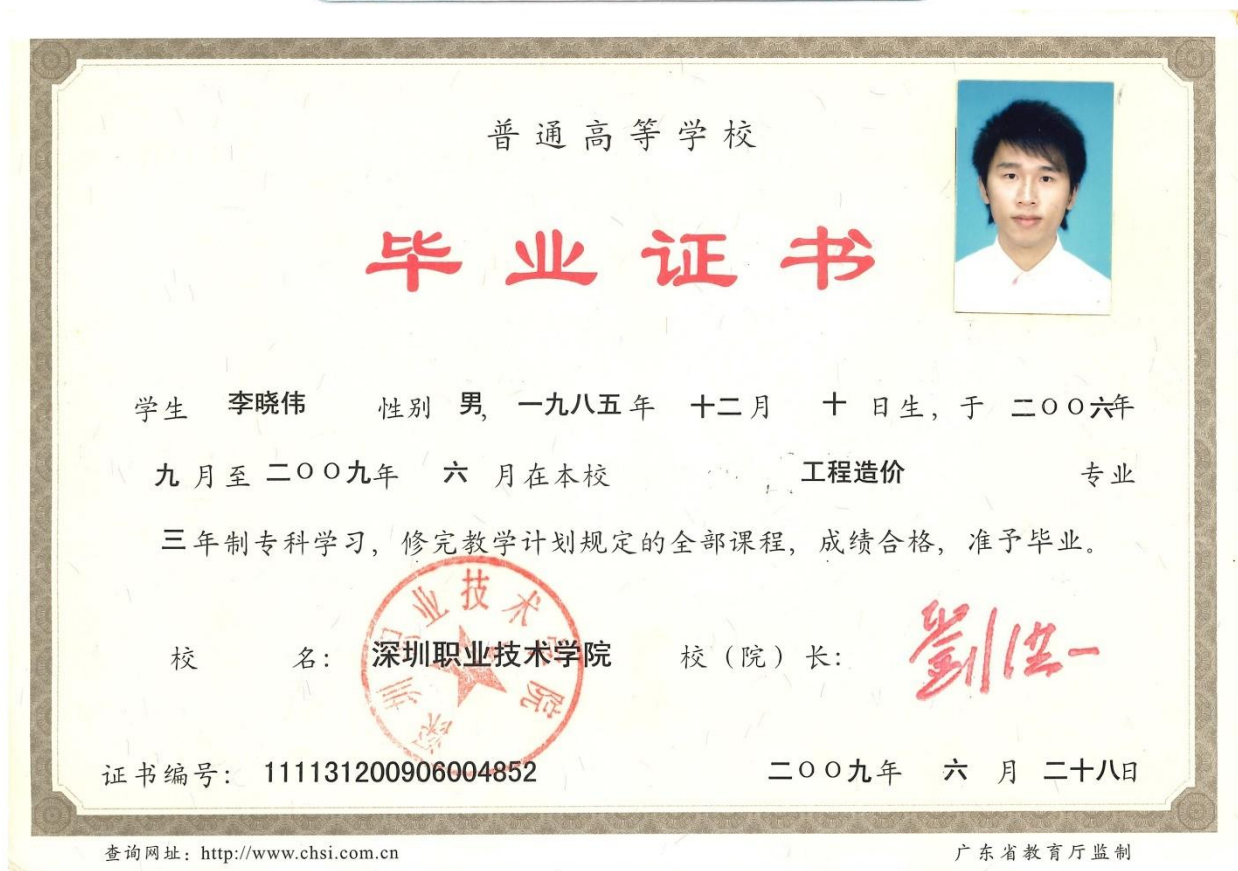 普通高等学校
毕业证书
学生 李晓伟 性别 男, 一九八五年 十二月 十日生, 于 二〇〇六年
九月至二〇〇九年 六月在本校 工程造价 专业
三年制专科学习, 修完教学计划规定的全部课程, 成绩合格, 准予毕业。
深圳职业技术学院
校 名: 深圳职业技术学院 校（院）长: 劉洪一
证书编号: 111131200906004852 二〇〇九年 六月 二十八日
查询网址: http://www.chsi.com.cn 广东省教育厅监制